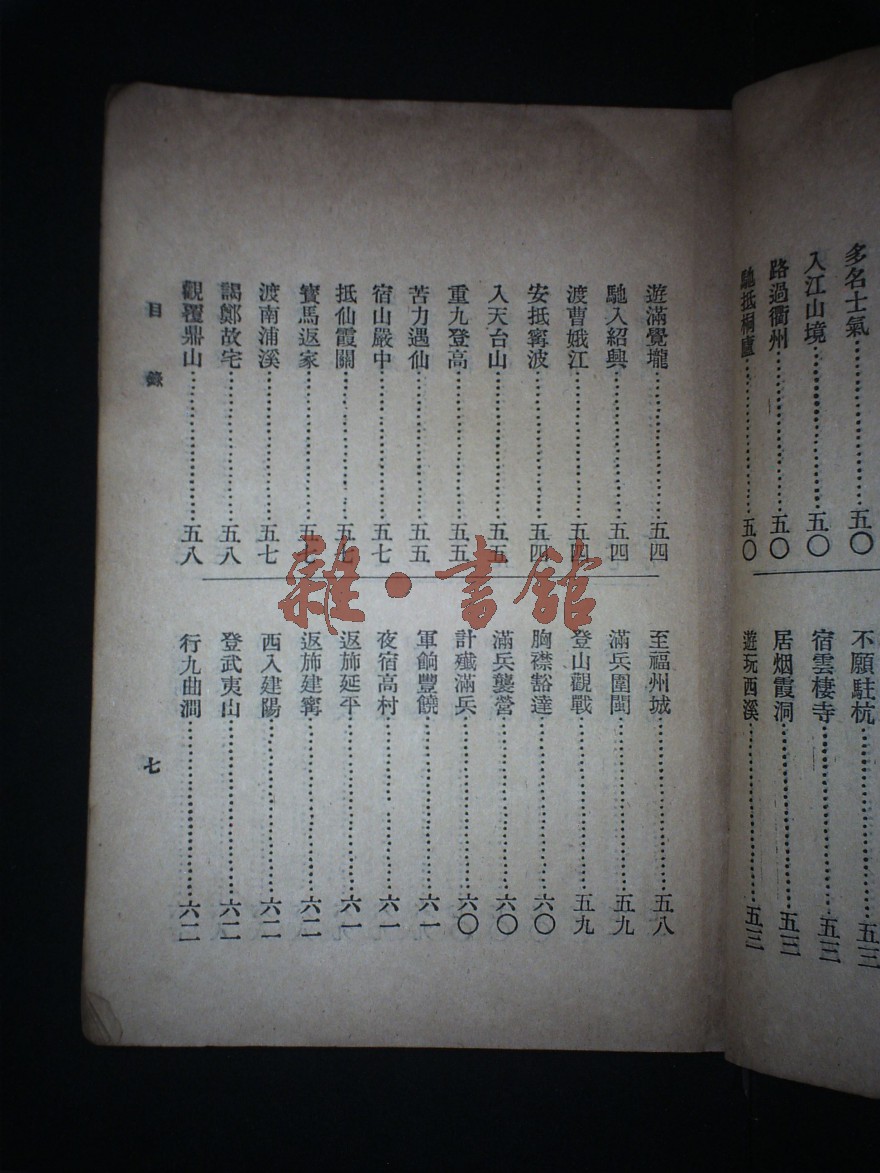 多名士氣…………五〇
入江山境…………五〇
路過衢州…………五〇
馳抵桐廬…………五〇
不願駐杭…………五三
宿雲棲寺…………五三
居烟霞洞…………五三
遊玩西溪…………五三
遊滿覺壠…………五四
馳入紹興…………五四
渡曹娥江…………五四
安抵寗波…………五四
入天台山…………五五
重九登高…………五五
苦力遇仙…………五五
宿山嚴中…………五七
抵仙霞關…………五七
馬返家…………五七
渡南浦溪…………五七
謁鄭故宅…………五八
觀覆鼎山…………五八
至福州城…………五八
滿兵圍閩…………五九
登山觀戰…………五九
胸襟豁達…………六〇
滿兵襲營…………六〇
計殲滿兵…………六〇
軍餉豐饒…………六一
夜宿高村…………六一
返施延平…………六一
返施建寗…………六二
西入建陽…………六二
登武夷山…………六二
行九曲澗…………六二
目錄
七
雜·書館